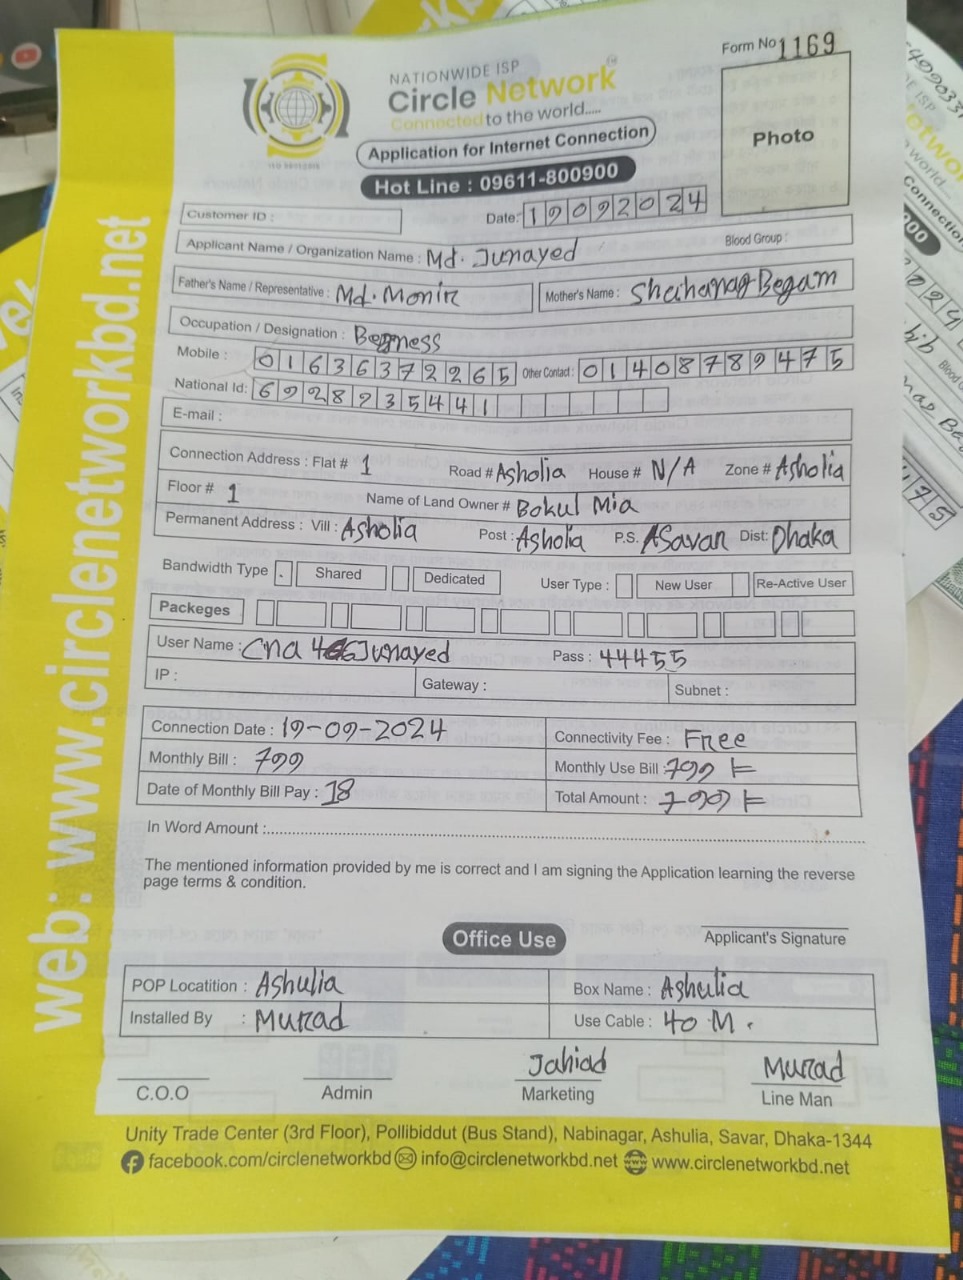 Form No 1169
NATIONWIDE ISP
Circle Network
Connected to the world.....
Application for Internet Connection
Hot Line : 09611-800900
Photo
Customer ID :
Date: 19092024
Applicant Name / Organization Name : Md. Junayed
Blood Group :
Father's Name / Representative : Md. Monir
Mother's Name : Shahanag Begam
Occupation / Designation : Begness
Mobile : 01636372265 Other Contact : 01408789475
National Id: 6928935441
E-mail :
Connection Address : Flat # 1 Road # Asholia House # N/A Zone # Asholia
Floor # 1 Name of Land Owner # Bokul Mia
Permanent Address : Vill : Asholia Post : Asholia P.S. ASavan Dist: Dhaka
Bandwidth Type Shared Dedicated User Type : New User Re-Active User
Packeges
User Name : Cna Junayed Pass : 44455
IP : Gateway : Subnet :
Connection Date : 19-09-2024 Connectivity Fee : Free
Monthly Bill : 799 Monthly Use Bill : 799
Date of Monthly Bill Pay : 18 Total Amount : 799
In Word Amount :
The mentioned information provided by me is correct and I am signing the Application learning the reverse
page terms & condition.
Applicant's Signature
Office Use
POP Locatition : Ashulia Box Name : Ashulia
Installed By : Murad Use Cable : 40 M.
Jahiad Murad
C.O.O Admin Marketing Line Man
Unity Trade Center (3rd Floor), Pollibiddut (Bus Stand), Nabinagar, Ashulia, Savar, Dhaka-1344
facebook.com/circlenetworkbd info@circlenetworkbd.net www.circlenetworkbd.net
web: www.circlenetworkbd.net